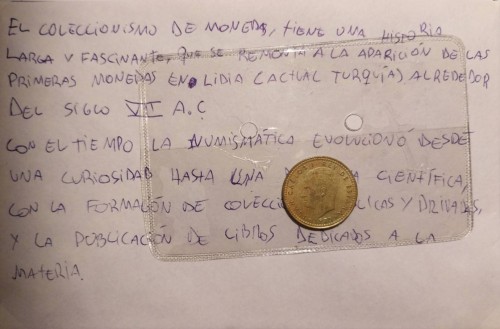 EL COLECCIONISMO DE MONEDAS, TIENE UNA HISTORIA
LARGA Y FASCINANTE, QUE SE REMONTA A LA APARICIÓN DE LAS
PRIMERAS MONEDAS EN LIDIA (ACTUAL TURQUÍA) ALREDEDOR
DEL SIGLO VII A.C
CON EL TIEMPO LA NUMISMÁTICA EVOLUCIONÓ DESDE
UNA CURIOSIDAD HASTA UNA CIENTÍFICA,
CON LA FORMACIÓN DE COLECCIO LICAS Y PRIVADAS,
Y LA PUBLICACIÓN DE LIBROS DEDICADOS A LA
MATERIA.